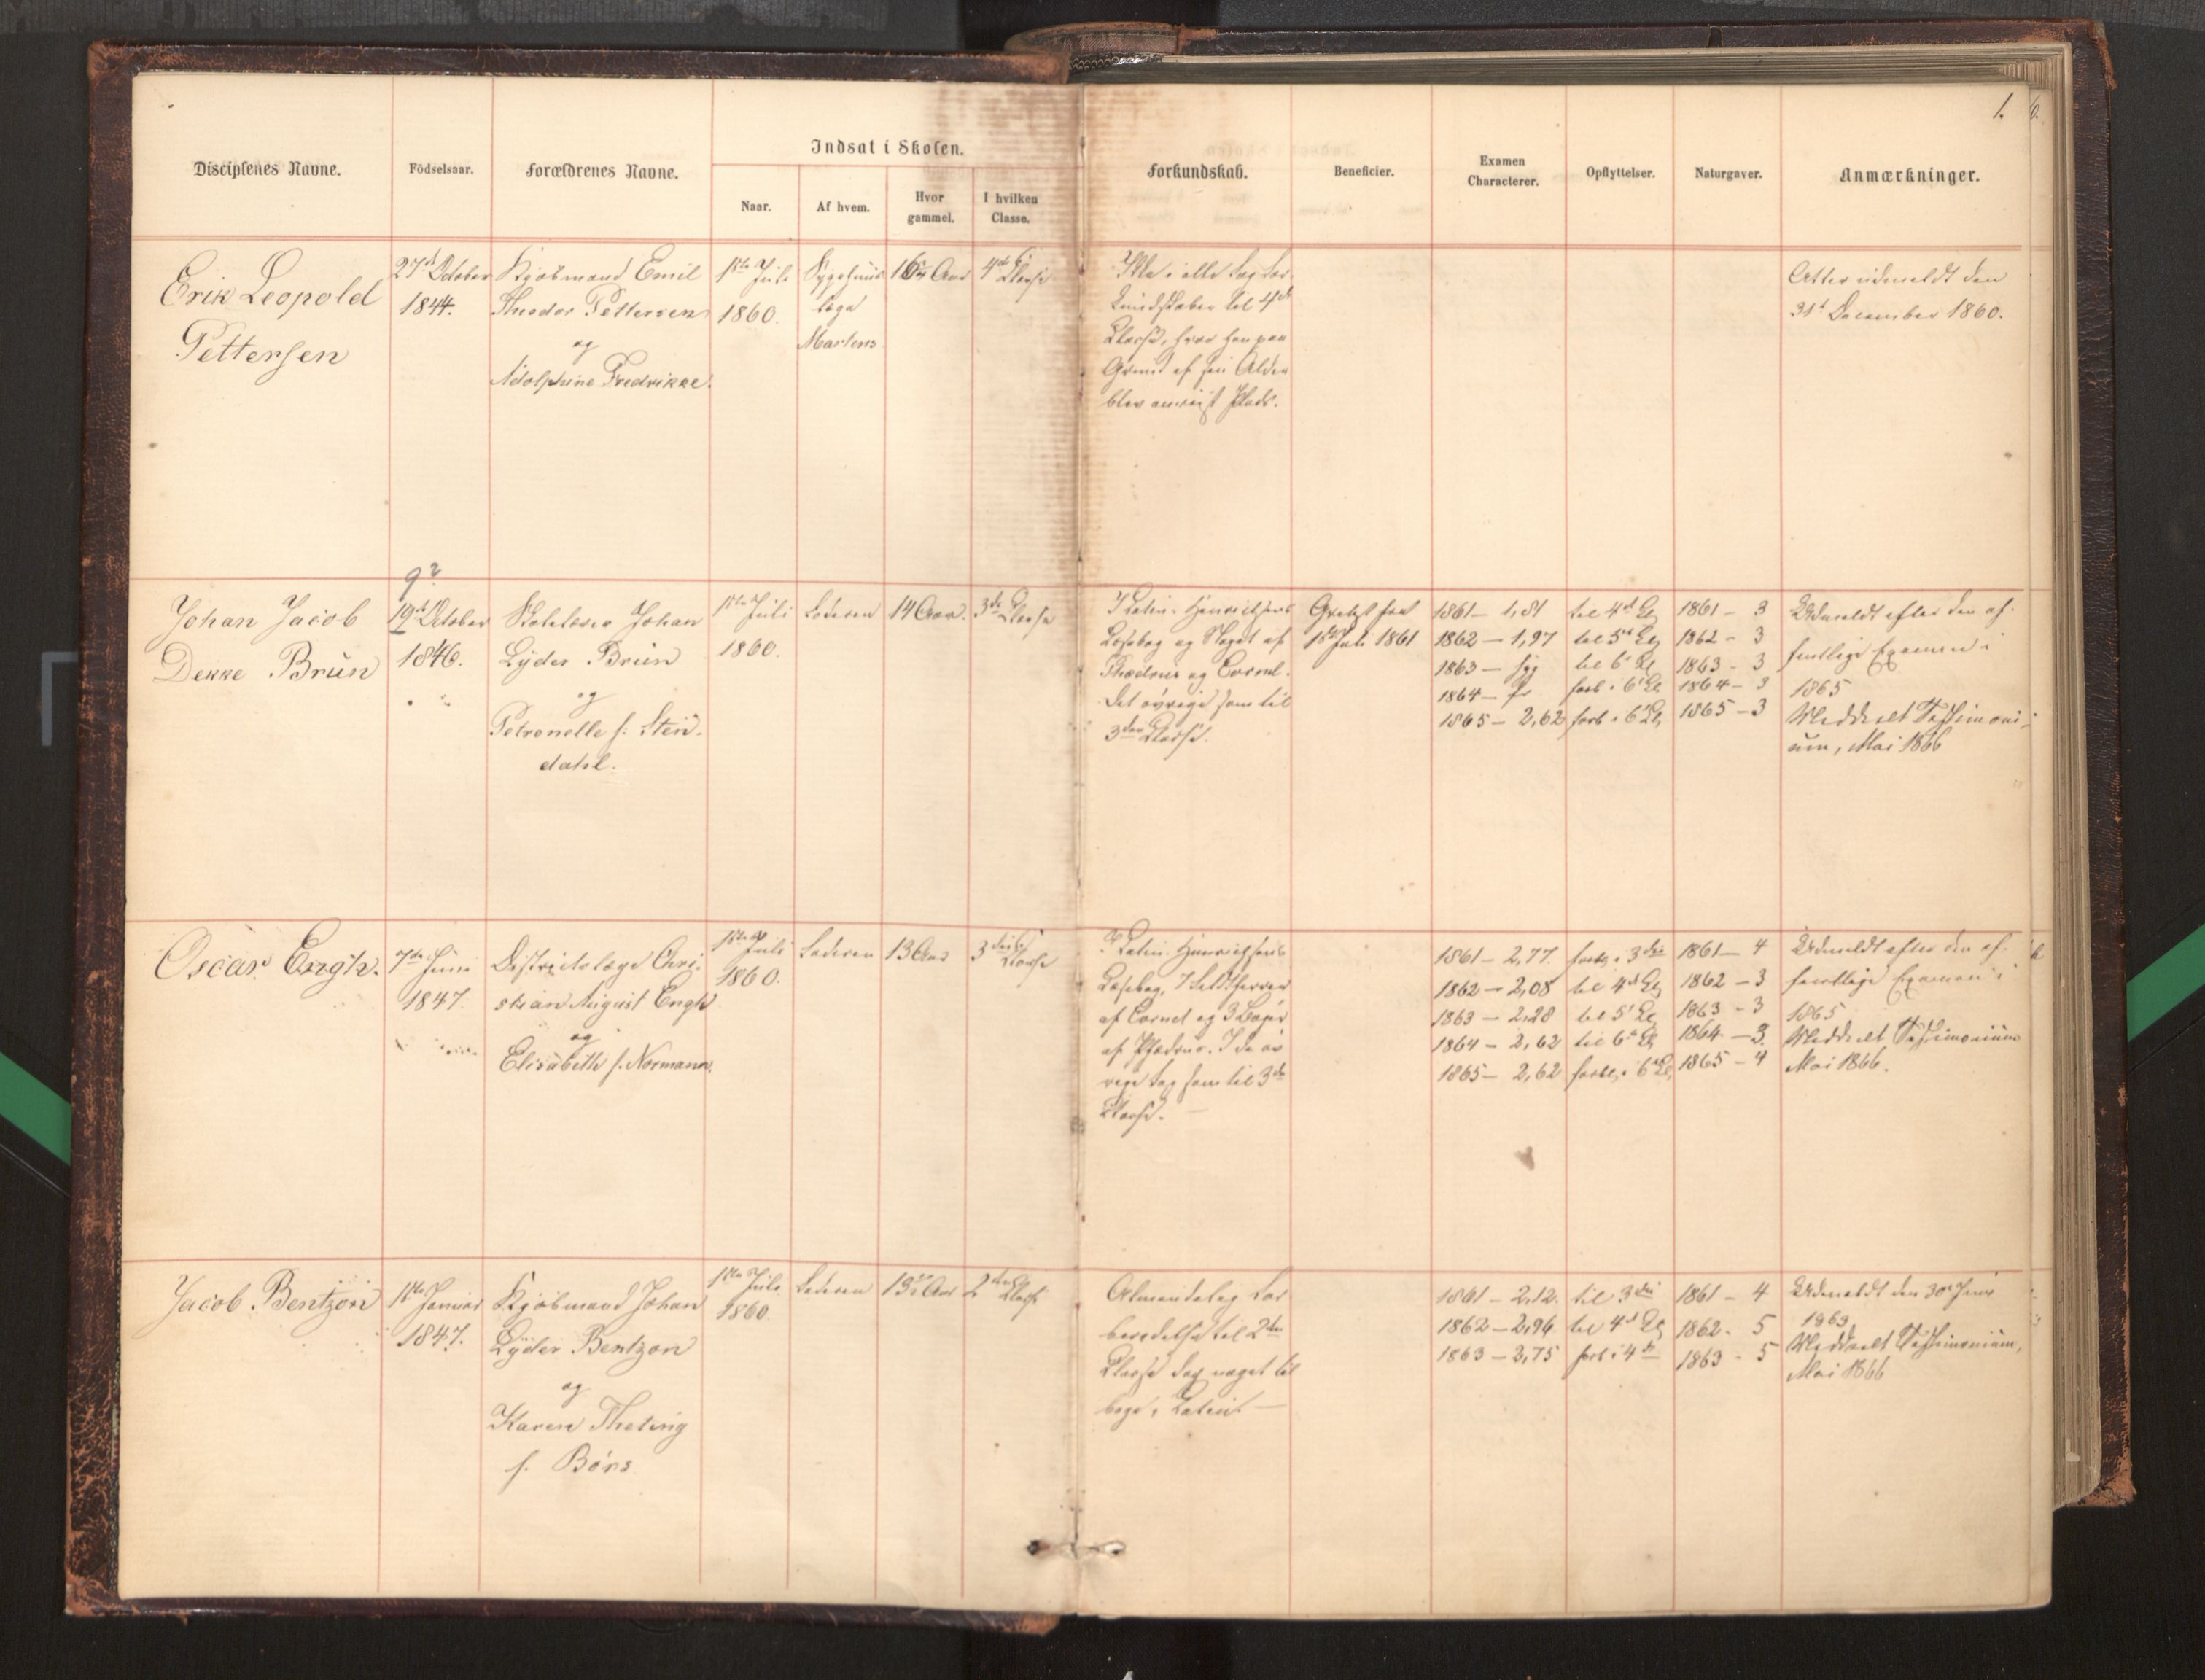 1.
Disciplenes Navne.
Födselsaar.
Forældrenes Navne.
Indsat i Skolen.
Naar.
Af hvem.
Hvor
gammel.
I hvilken
Classe.
Forkundskab.
Beneficier.
Examen
Characterer.
Opflyttelser.
Naturgaver.
Anmærkninger.
Erik Leopold
Pettersen
27de October
1844.
Kjøbmand Emil
Theodor Pettersen
og
Adolphine Fredrikke.
1ste Juli
1860.
læge
Martens
Aar
4de Classe
Ikke i alle Fag For-
kundskaber til 4de
Classe, hvor han paa
Grund af sin Alder
blev anvist Plads.
Atter udmeldt den
31te December 1860.
Johan Jacob
Dekke Brun
19de October
1846.
Skolelærer Johan
Lyder Brun
og
Petronelle f. Sten-
dahl.
1ste Juli
1860.
Faderen
14 Aar.
3de Classe
I Latin
Læsebog og Noget af
Phædrus og Cornel.
Det øvrige som til
3die Classe.
Juli 1861
1861 - 1,81
1862 - 1,97
1863 - syg
1864 -
1865 - 2,62
til 4de Cl
til 5te Cl
til 6te Cl
forb. i 6te Cl
forb. i 6te Cl
1861 - 3
1862 - 3
1863 - 3
1864 - 3
1865 - 3
Udmeldt efter den of-
fentlige Examen i
1865
Meddeelt Testimoni-
um, Mai 1866
Oscar Engh.
7de Juni
1847.
Districtslæge Chri-
stian August Engh
og
Elisabeth f. Normann.
1ste Juli
1860.
Faderen
13 Aar
3die Classe
I Latin
Læsebog, 7 Feldtherrer
af Cornel og 3 Bøger
af Phædrus. I de øv-
rige Fag som til 3die
Classe. -
1861 - 2,77.
1862 - 2,08
1863 - 2,28
1864 - 2,62
1865 - 2,62
forb. i 3die
til 4de Cl
til 5te Cl
til 6te Cl
forbl. i 6te Cl
1861 - 4
1862 - 3
1863 - 3
1864 - 3
1865 - 4
Udmeldt efter den of-
fentlige Examen i
1865
Meddeelt Testimonium
Mai 1866.
Jacob Bentzon
1ste Januar
1847.
Kjøbmand Johan
Lyder Bentzon
og
Karen Theting
f. Børs
1ste Juli
1860
Faderen
Aar
2den Classe
Almindelig For-
beredelse til 2den
Classe dog noget til-
bage i Latin. -
1861 - 2,12.
1862 - 2,94
1863 - 2,75
til 3die
til 4de Cl
forb. i 4de
1861 - 4
1862 - 5
1863 - 5
Udmeldt den 30te Juni
1863
Meddeelt Testimonium,
Mai 1866